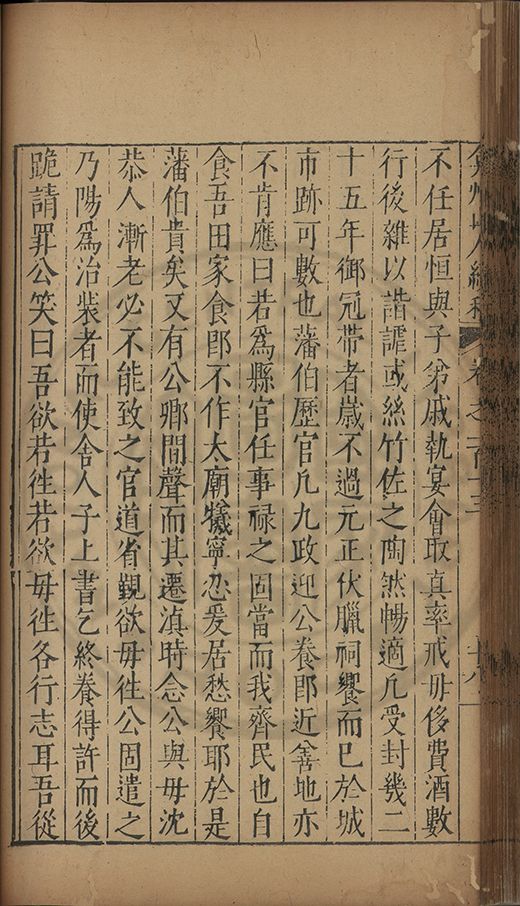 弇州山人續稿 卷之一百十三 十八
不任居恒與子弟戚執宴會取真率戒毋侈費酒數
行後雜以諧謔或絲竹佐之陶然暢適凡受封幾二
十五年御冠帶者歲不過元正伏臘祠饗而已於城
市跡可數也藩伯歷官凡九政迎公養郎近善地亦
不肯應曰若為縣官任事祿之固當而我齊民也自
食吾田家食郎不作太廟犧寧忍爰居愁饗耶於是
藩伯貴矣又有公卿間聲而其遷滇時念公與毋沈
恭人漸老必不能致之官道省覲欲毋徃公固遣之
乃陽為治裝者而使舍人子上書乞終養得許而後
跪請罪公笑曰吾欲若徃若欲毋徃各行志耳吾從